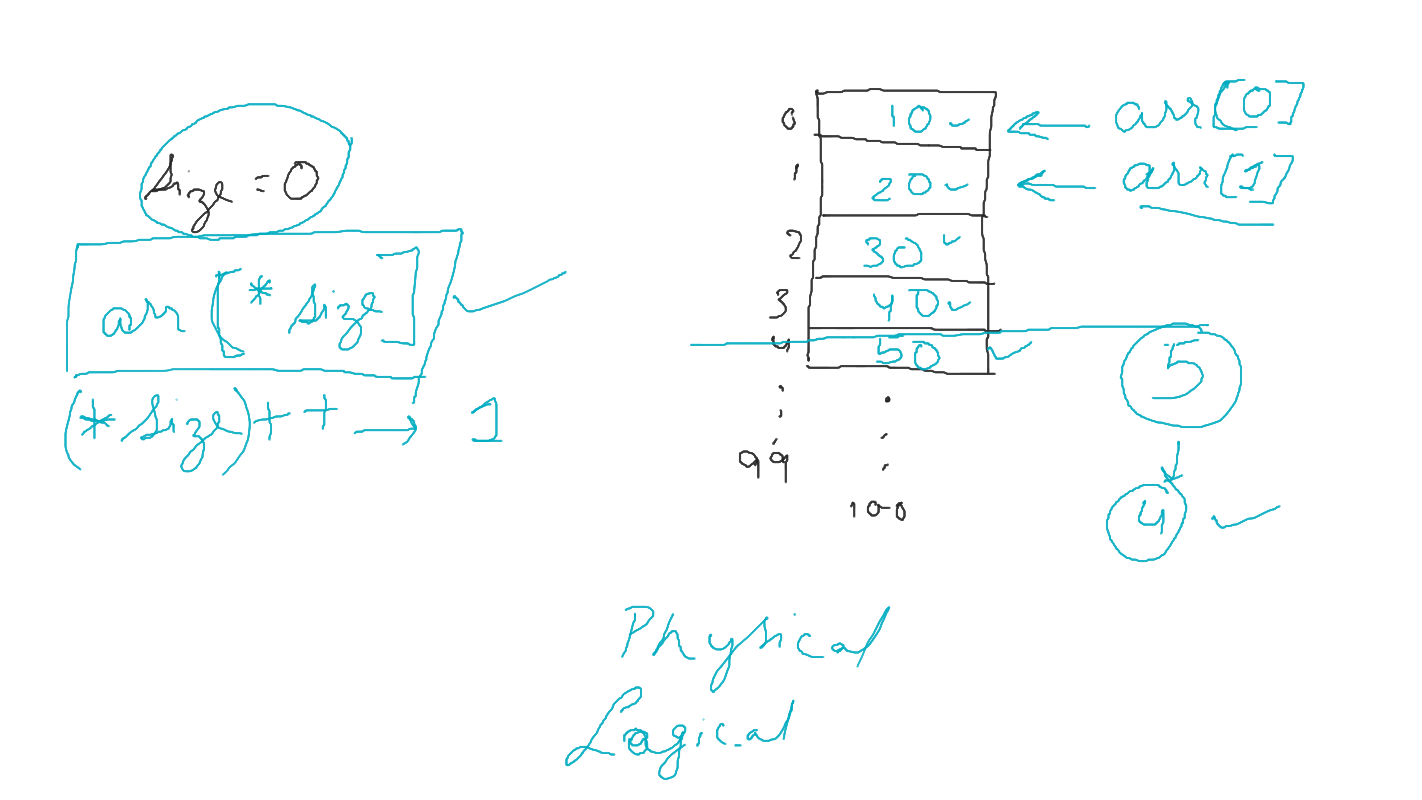 size = 0
arr [* size]
(* size)++ → 1
0 10 ← arr[0]
1 20 ← arr[1]
2 30
3 40
4 50
5
4
99
100
Physical
Logical